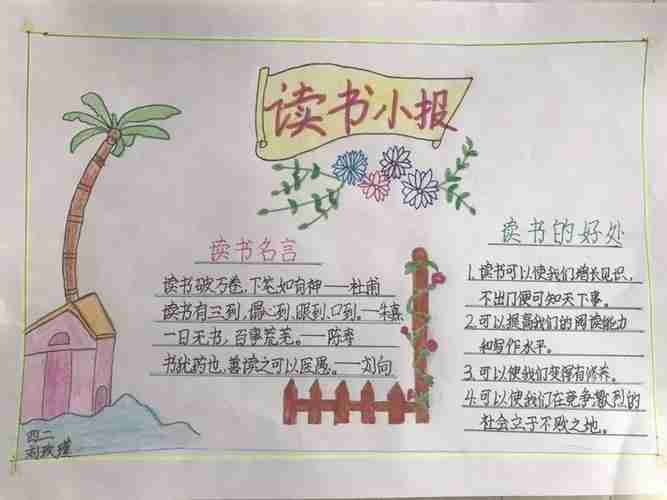 读书小报
读书名言
读书破万卷,下笔如有神——杜甫
读书有三到,谓心到,眼到,口到。——朱熹
一日无书,百事荒芜。——陈寿
书犹药也,善读之可以医愚。——刘向
读书的好处
1.读书可以使我们增长见识,
不出门便可知天下事。
2.可以提高我们的阅读能力
和写作水平。
3.可以使我们变得有修养。
4.可以使我们在竞争激烈的
社会立于不败之地。
四二
刘